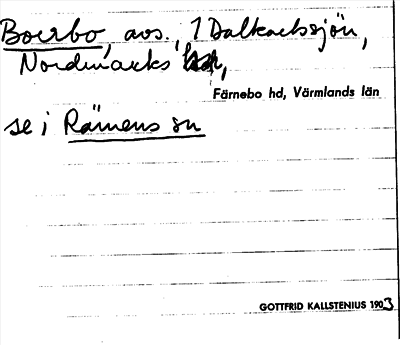 Boerbo, avs., 1 Dalkarlssjön,
Nordmarks
Färnebo hd, Värmlands län
se i Rämens sn
GOTTFRID KALLSTENIUS 1903